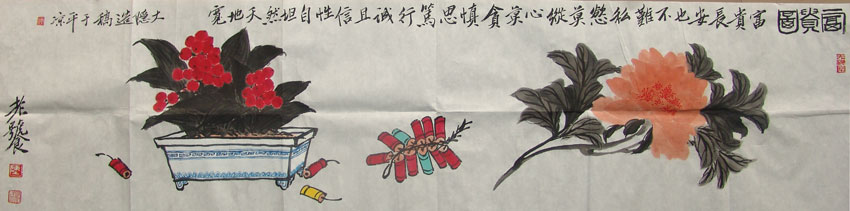 富貴圖
富貴長安也不難私慾莫從心莫貪慎思篤行誠且信性自坦然天地寬
大隐造稿于平凉
老饕